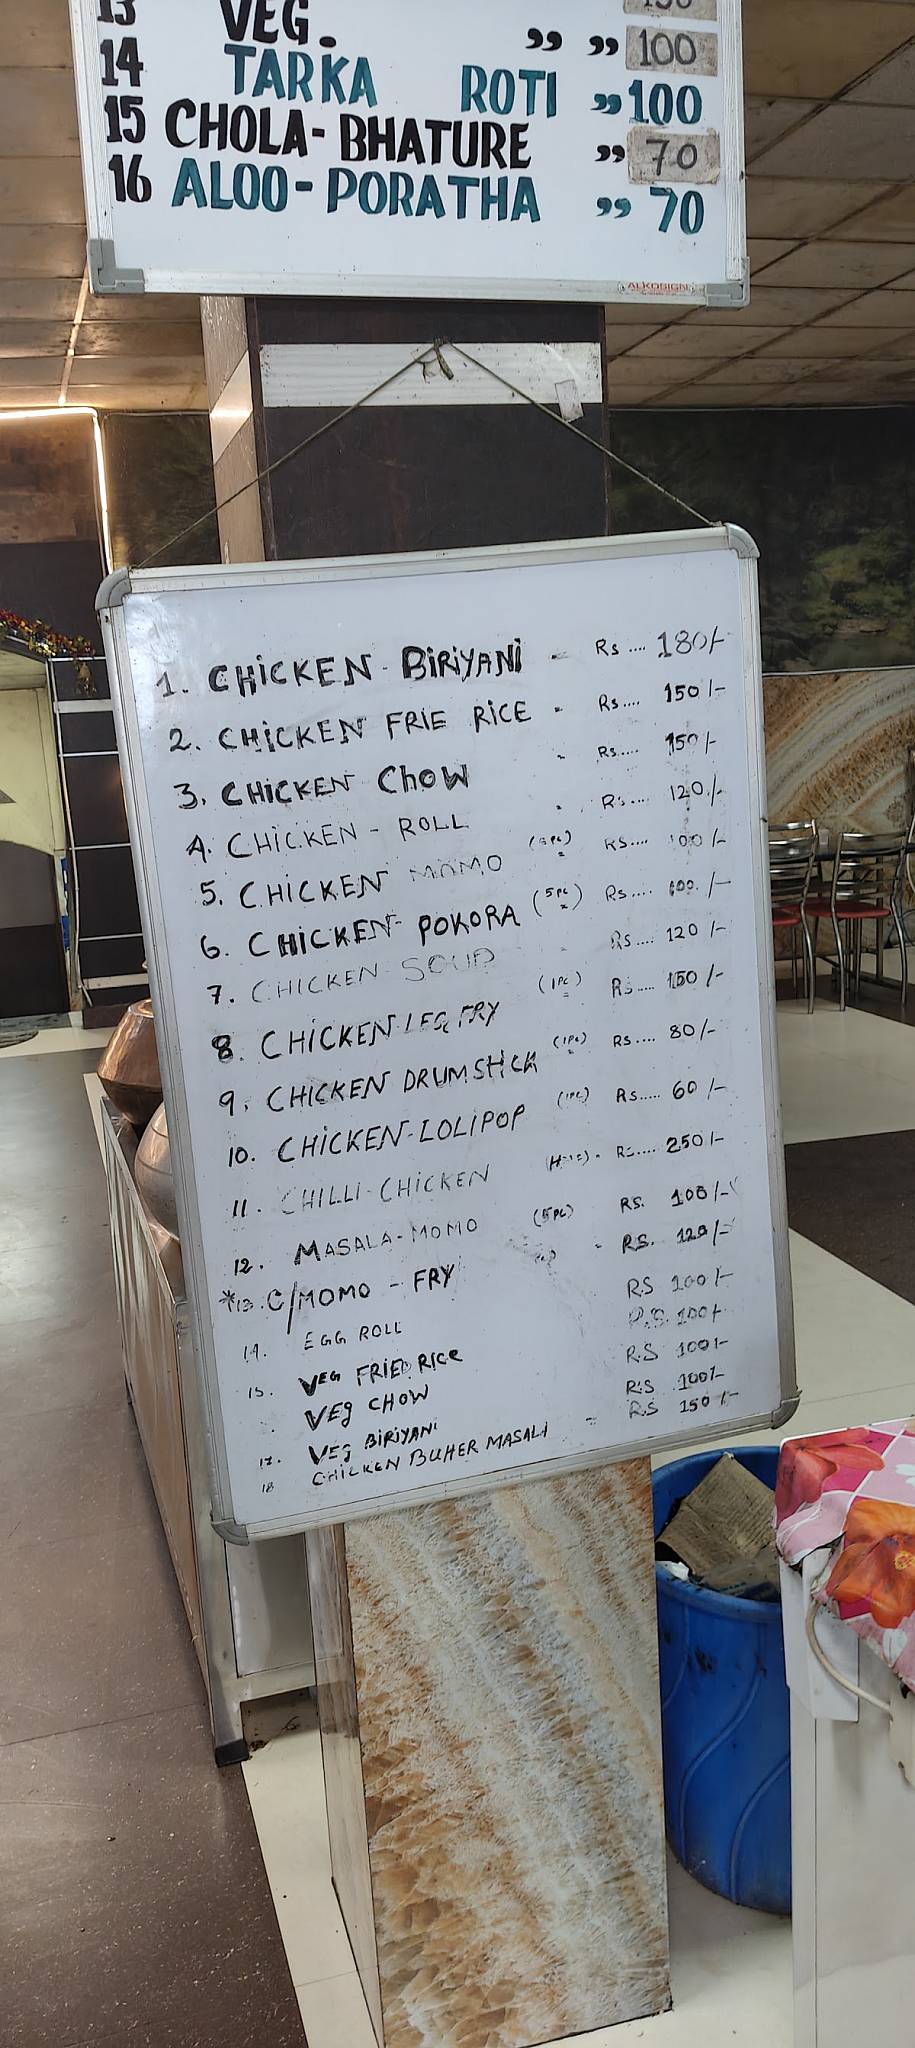 13 VEG. ” ” 100
14 TARKA ROTI ” 100
15 CHOLA-BHATURE ” 70
16 ALOO-PORATHA ” 70
ALKOSIGN
1. CHiCKEN - BiRiYANi - Rs .... 180/-
2. CHiCKEN FRIE RiCE - Rs.... 150/-
3. CHiCKEN ChOW - Rs.... 150/-
4. CHiCKEN - ROLL - Rs.... 120/-
5. CHiCKEN MOMO Rs.... 100/-
6. CHiCKEN - POKORA (5PC) Rs.... 100/-
7. CHICKEN SOUP - Rs.... 120/-
8. CHiCKEN LEG FRY (1PC) Rs.... 150/-
9. CHiCKEN DRUMSTiCK (1PC) Rs.... 80/-
10. CHiCKEN-LOLIPOP (1PC) Rs..... 60/-
11. CHILLI-CHICKEN - Rs.... 250/-
12. MASALA-MOMO (5PC) RS. 100/-
*13. C/MOMO - FRY - RS. 120/-
14. EGG ROLL RS 100/-
15. VEG FRIED RICE R.S. 100/-
VEg CHOW R.S 100/-
17. VEg BiRiYANi R.S 100/-
18 CHICKEN BUHER MASALI - R.S 150/-